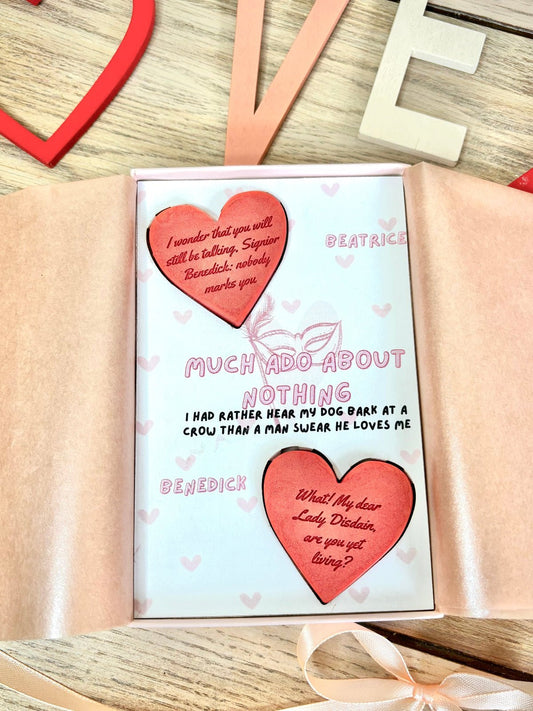 VE
I wonder that you will
still be talking, Signior
Benedick: nobody
marks you
BEATRICE
MUCH ADO ABOUT
NOTHING
I HAD RATHER HEAR MY DOG BARK AT A
CROW THAN A MAN SWEAR HE LOVES ME
BENEDICK
What! My dear
Lady Disdain,
are you yet
living?